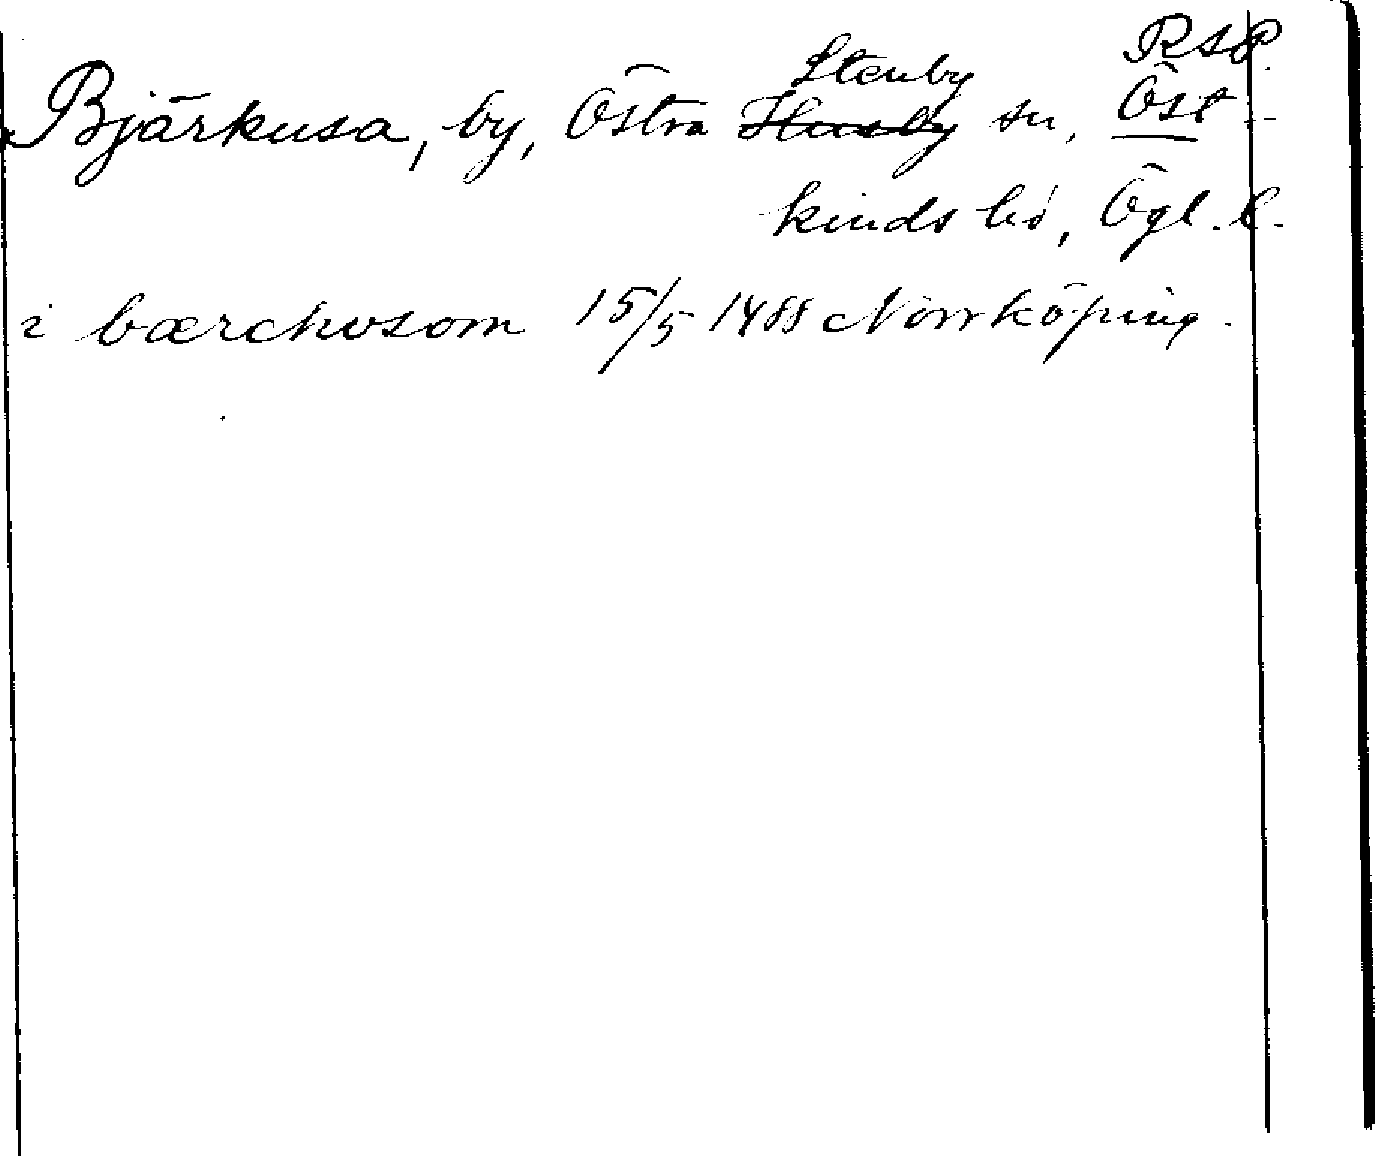 RSP.
Stenby
Bjärkusa, by, Östra Husby sn, Öst-
kinds hd, Ögl. l.
i bærchvsom 15/5 1488 Norrköping.